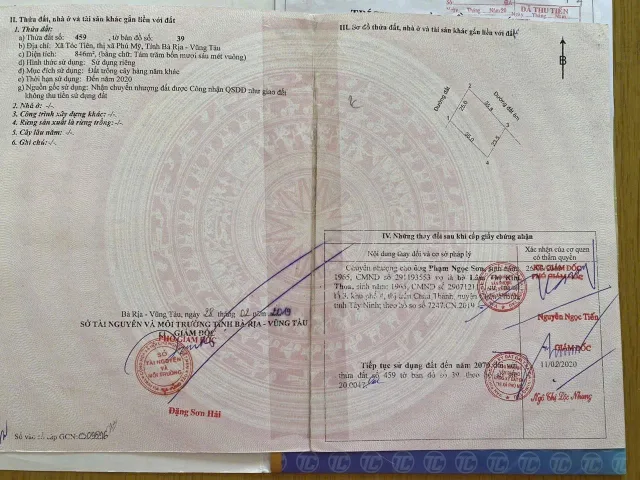 II. Thửa đất, nhà ở và tài sản khác gắn liền với đất
1. Thửa đất:
a) Thửa đất số: 459 , tờ bản đồ số: 39
b) Địa chỉ: Xã Tóc Tiên, thị xã Phú Mỹ, Tỉnh Bà Rịa - Vũng Tàu
c) Diện tích: 846m², (bằng chữ: Tám trăm bốn mươi sáu mét vuông)
d) Hình thức sử dụng: Sử dụng riêng
đ) Mục đích sử dụng: Đất trồng cây hàng năm khác
e) Thời hạn sử dụng: Đến năm 2020
g) Nguồn gốc sử dụng: Nhận chuyển nhượng đất được Công nhận QSDĐ như giao đất
không thu tiền sử dụng đất
2. Nhà ở: -/-
3. Công trình xây dựng khác: -/-
4. Rừng sản xuất là rừng trồng: -/-
5. Cây lâu năm: -/-
6. Ghi chú: -/-
Bà Rịa - Vũng Tàu, ngày 28 tháng 02 năm 2019
SỞ TÀI NGUYÊN VÀ MÔI TRƯỜNG TỈNH BÀ RỊA - VŨNG TÀU
GIÁM ĐỐC
PHÓ GIÁM ĐỐC
SỞ
TÀI NGUYÊN
VÀ
MÔI TRƯỜNG
Đặng Sơn Hải
Số vào sổ cấp GCN:
ĐÃ THU TIỀN
III. Sơ đồ thửa đất, nhà ở và tài sản khác gắn liền với đất
B
Đường đất
Đường đất 6m
1
2
3
4
IV. Những thay đổi sau khi cấp giấy chứng nhận
Nội dung thay đổi và cơ sở pháp lý
Xác nhận của cơ quan
có thẩm quyền
Chuyển nhượng cho ông Phạm Ngọc Sơn, sinh năm
1965, CMND số 291193553 và bà Lâm Thị Kim
Thoa, sinh năm 1965, CMND số
khu phố 2, thị trấn Châu Thành, huyện Châu Thành,
tỉnh Tây Ninh; theo hồ sơ số 7247.CN.2019
KT. GIÁM ĐỐC
PHÓ GIÁM ĐỐC
Nguyễn Ngọc Tiến
Tiếp tục sử dụng đất đến năm 2070 đối với
thửa đất số 459 tờ bản đồ số 39, theo
GIÁM ĐỐC
11/02/2020
Ngô Thị Lộc Nhung